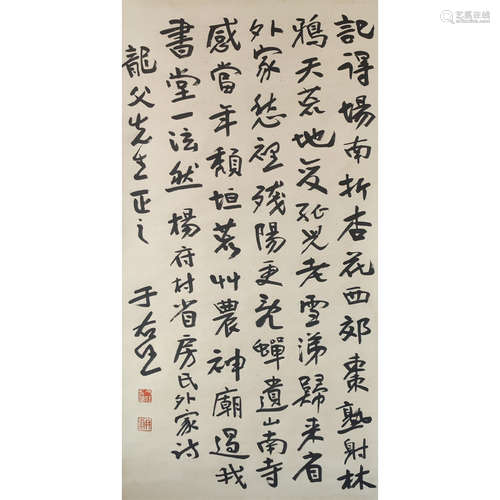 記得場南折杏花西郊棗熟射林
鴉天荒地変孤兒老雪涕歸来省
外家愁裡殘陽更乱蟬遺山南寺
感當年頹垣荒艸農神廟過我
書堂一泫然楊府村省房氏外家詩
龍父先生正之
于右任
艺狐在线